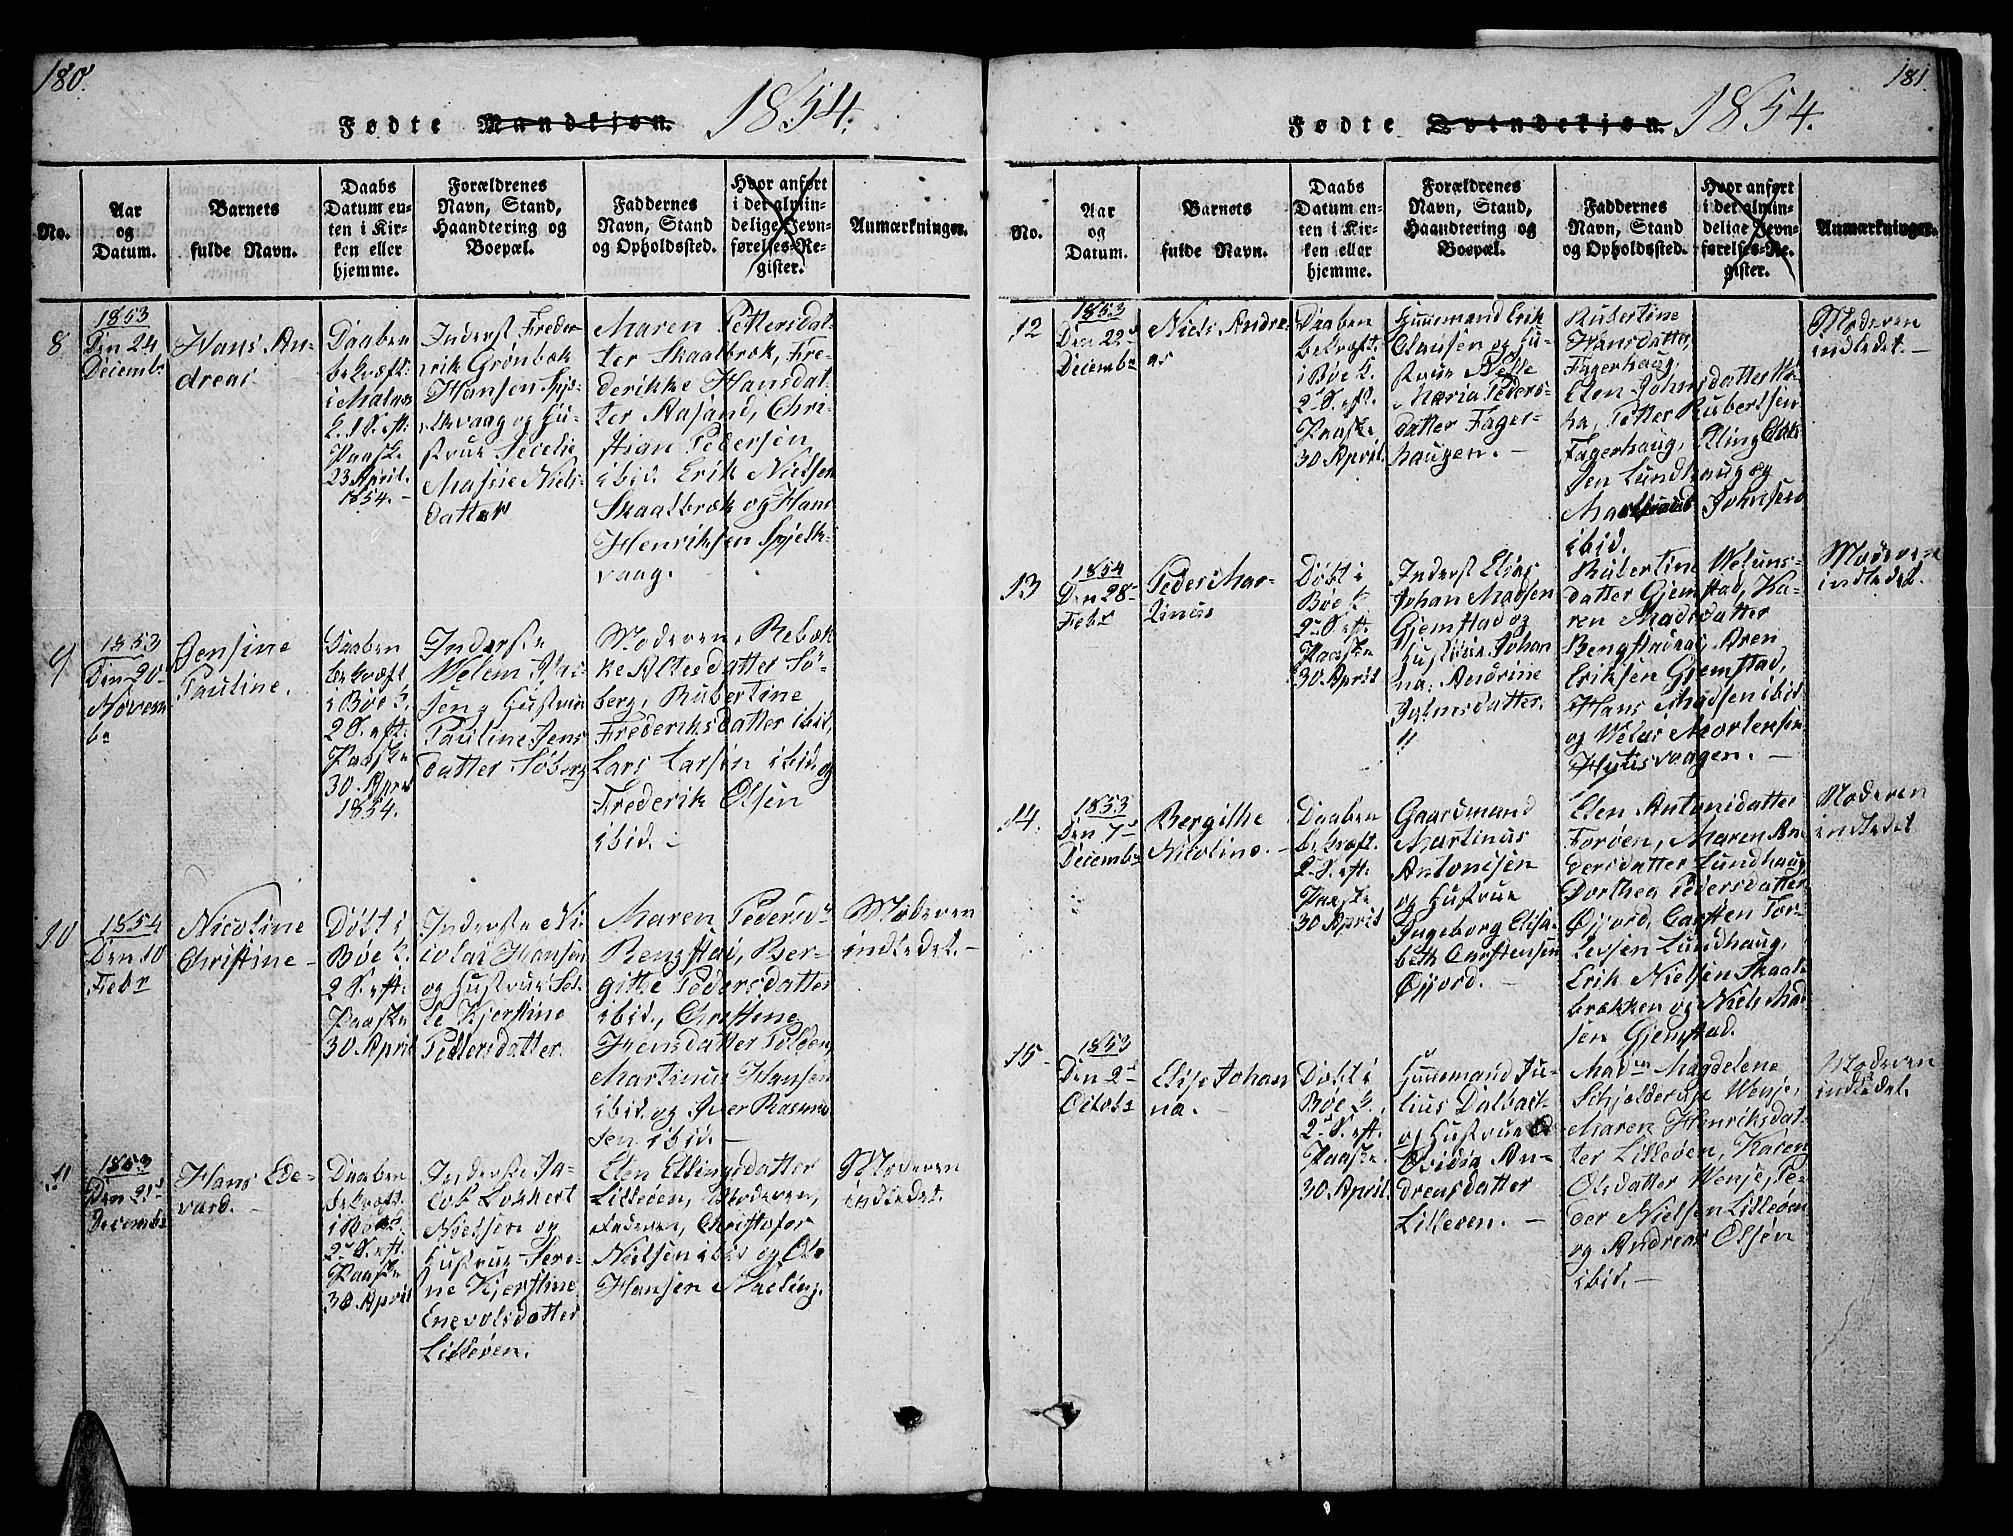 180.
Fødte Mandkjøn. 1854.
No.
Aar
og
Datum.
Barnets
fulde Navn.
Daabs
Datum en-
ten i Kir-
ken eller
hjemme.
Forældrenes
Navn, Stand,
Haandtering og
Boepæl.
Faddernes
Navn, Stand
og Opholdssted.
Hvor anført
i det almin-
delige Jevn-
førelses-Re-
gister.
Anmærkninger.
8
1853
Den 24
Decembr
Hans An-
dreas
Daaben
bekræft.
i Malnes
K. 1 S. eft.
Paaske
23 April.
1854.-
Inderst Freder
rik Grønbæk
Hansen Spjs-
elkvaag og Hu-
strue Secelie
Massie Niels-
datter
Maren Pettersdat-
ter Skaalbræk, Fre-
derikke Hansdat-
ter Aasand, Chri-
stian Pedersen
ibid. Erik Nielsen
Skaalbræk og Hans
Henriksen Spjelk-
vaag.
9
1853
Den 20
Novem
br
Jensine
Pauline.
Daaben
bekræft
i Bøe K.
2 S. eft.
Paaske
30 April
1854.
Inderste
Welem
sen og Hustrue
Pauline Jens
datter Søberg
Moderen, Rebæk
ke Altesdatter Sö-
berg, Rubertine
Frederiksdatter ibid,
Lars Larsen ibid, og
Frederik Olsen
ibid. -
10
1854
Den 10
Febr
Nicoline
Christine
Døbt i
Bøe K.
2 S. eft
Paaske
30 April
Inderste Ni-
colai Hansen
og Hustrue Sel-
le Kjerstine
Pettersdatter.
Maren Pedersd
Bengstai, Ber-
gitte Pedersdatter
ibid., Christine
Jensdatter Polden,
Martinus Hansen
ibid. og Iver Rasmus
sen ibid. -
Moderen
indledet. -
11
1853
Den 21d
Decembr
Hans Ede-
vard. -
Daaben
bekræft.
i Bøe K.
2r S. eft.
Paaske
30 April
Inderste Ja-
cob Lokkert
Nielsen og
Hustrue Sere-
ne Kjerstine
Enevolsdatter
Lilleøen.
Elen Ellingsdatter
Lilleøen, Moderen,
Faderen, Christofer
Nielsen ibid og Ole
Hansen Mæling.
Moderen
indledet.
181.
Fødte Qvindekjøn. 1854.
No.
Aar
og
Datum.
Barnets
fulde Navn.
Daabs
Datum en-
ten i Kir-
ken eller
hjemme.
Forældrenes
Navn, Stand,
Haandtering og
Boepæl.
Faddernes
Navn, Stand
og Opholdssted.
Hvor anført
i det almin-
delige Jevn-
førelses-Re-
gister.
Anmærkninger.
12
1853
Den 22d
Decembr
Niels Andre-
as
Daaben
bekræft.
i Bøe K.
2r S. eft.
Paaske
30 April.
Huusmand Erik
Clausen og Hu-
strue Pelle
Maria Peders-
datter Fager-
haugen. -
Rubertine
Hansdatter,
Fagerhaug,
Elen Johnsdatter
Petter Rubertsen
Fagerhaug, Eling
sen Lundhaug og
Johnsen
ibid.
Moderen
indledet. -
13
1854
Den 28
Febr
Peder Mar-
tinus
Døbt i
Bøe K
2r S. eft.
Paaske
30 April
Inderst Elias
Johan Madsen
Gjemstad og
Hustrue Johan
na Andrine
datter.
Rubertine Welums-
datter Gjemstad, Ka-
ren Madsdatter
Bengstadai, Aren
Eriksen Gjemstad,
Hans Madsen ibid
og Velas Mortensen
Hutisvaagen. -
Moderen
indledet.
14.
1853
Den 7d
Decembr
Bergithe
Nicoline. -
Daaben
bekræft.
2r S. eft.
Paaske
30 April
Gaardmand
Martinus
Antonisen
og Hustrue
Ingeborg Elisa-
beth Carstensen
Øjjord. -
Elen Antonsdatter
Forøen, Maren An-
dersdatter Lundhaug
Dorthea Pedersdatter
Øjjord, Carsten Tor-
leivsen Lundhaug,
Erik Nielsen Skaal-
brækken og Niels Mad
sen Gjemstad.
Moderen
indledet
15
1853
Den 2d
Octobr
Elise Johan
na. -
Døbt i
Bøe K.
2r S. eft.
Paaske
30 April.
Huusmand Ju-
lius Dalbakk
og Hustrue
Ovidia An-
dreasdatter
Lilleøen. -
Madm Magdelene
Schjelderup Wenje,
Maren Henriksdat-
ter Lilleøen, Karen
Olsdatter Wenje, Pe-
der Nielsen Lilleøen
og Andreas Olsen
ibid. -
Moderen
indledet.